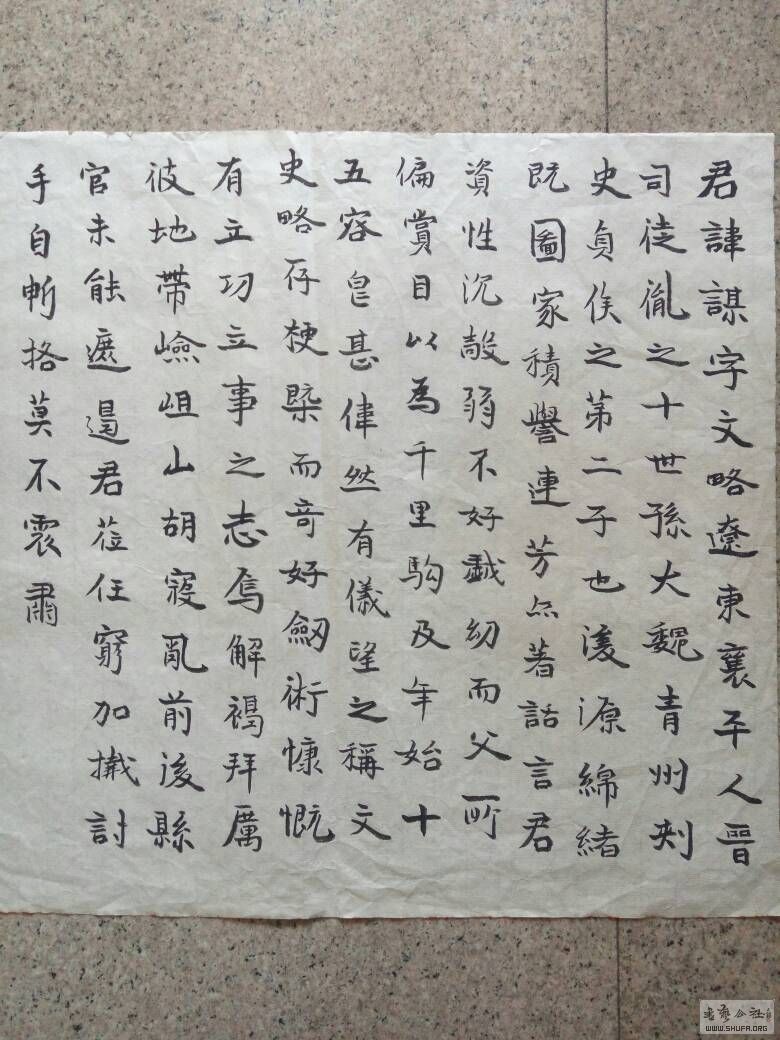 君諱謀字文略遼東襄平人晉
司徒胤之十世孫大魏青州刺
史貞侯之第二子也浚源綿緒
既圖家積譽連芳亦著話言君
資性沉敞弱不好戲幼而父所
偏賞目以為千里駒及年始十
五容皃甚偉然有儀望之稱文
史略存梗槩而奇好劔術慷慨
有立功立事之志焉解褐拜厲
彼地帶嶮岨山胡寇亂前後縣
官未能遮遏君莅任窮加擒討
手自斬格莫不震肅
WWW.SHUFA.ORG